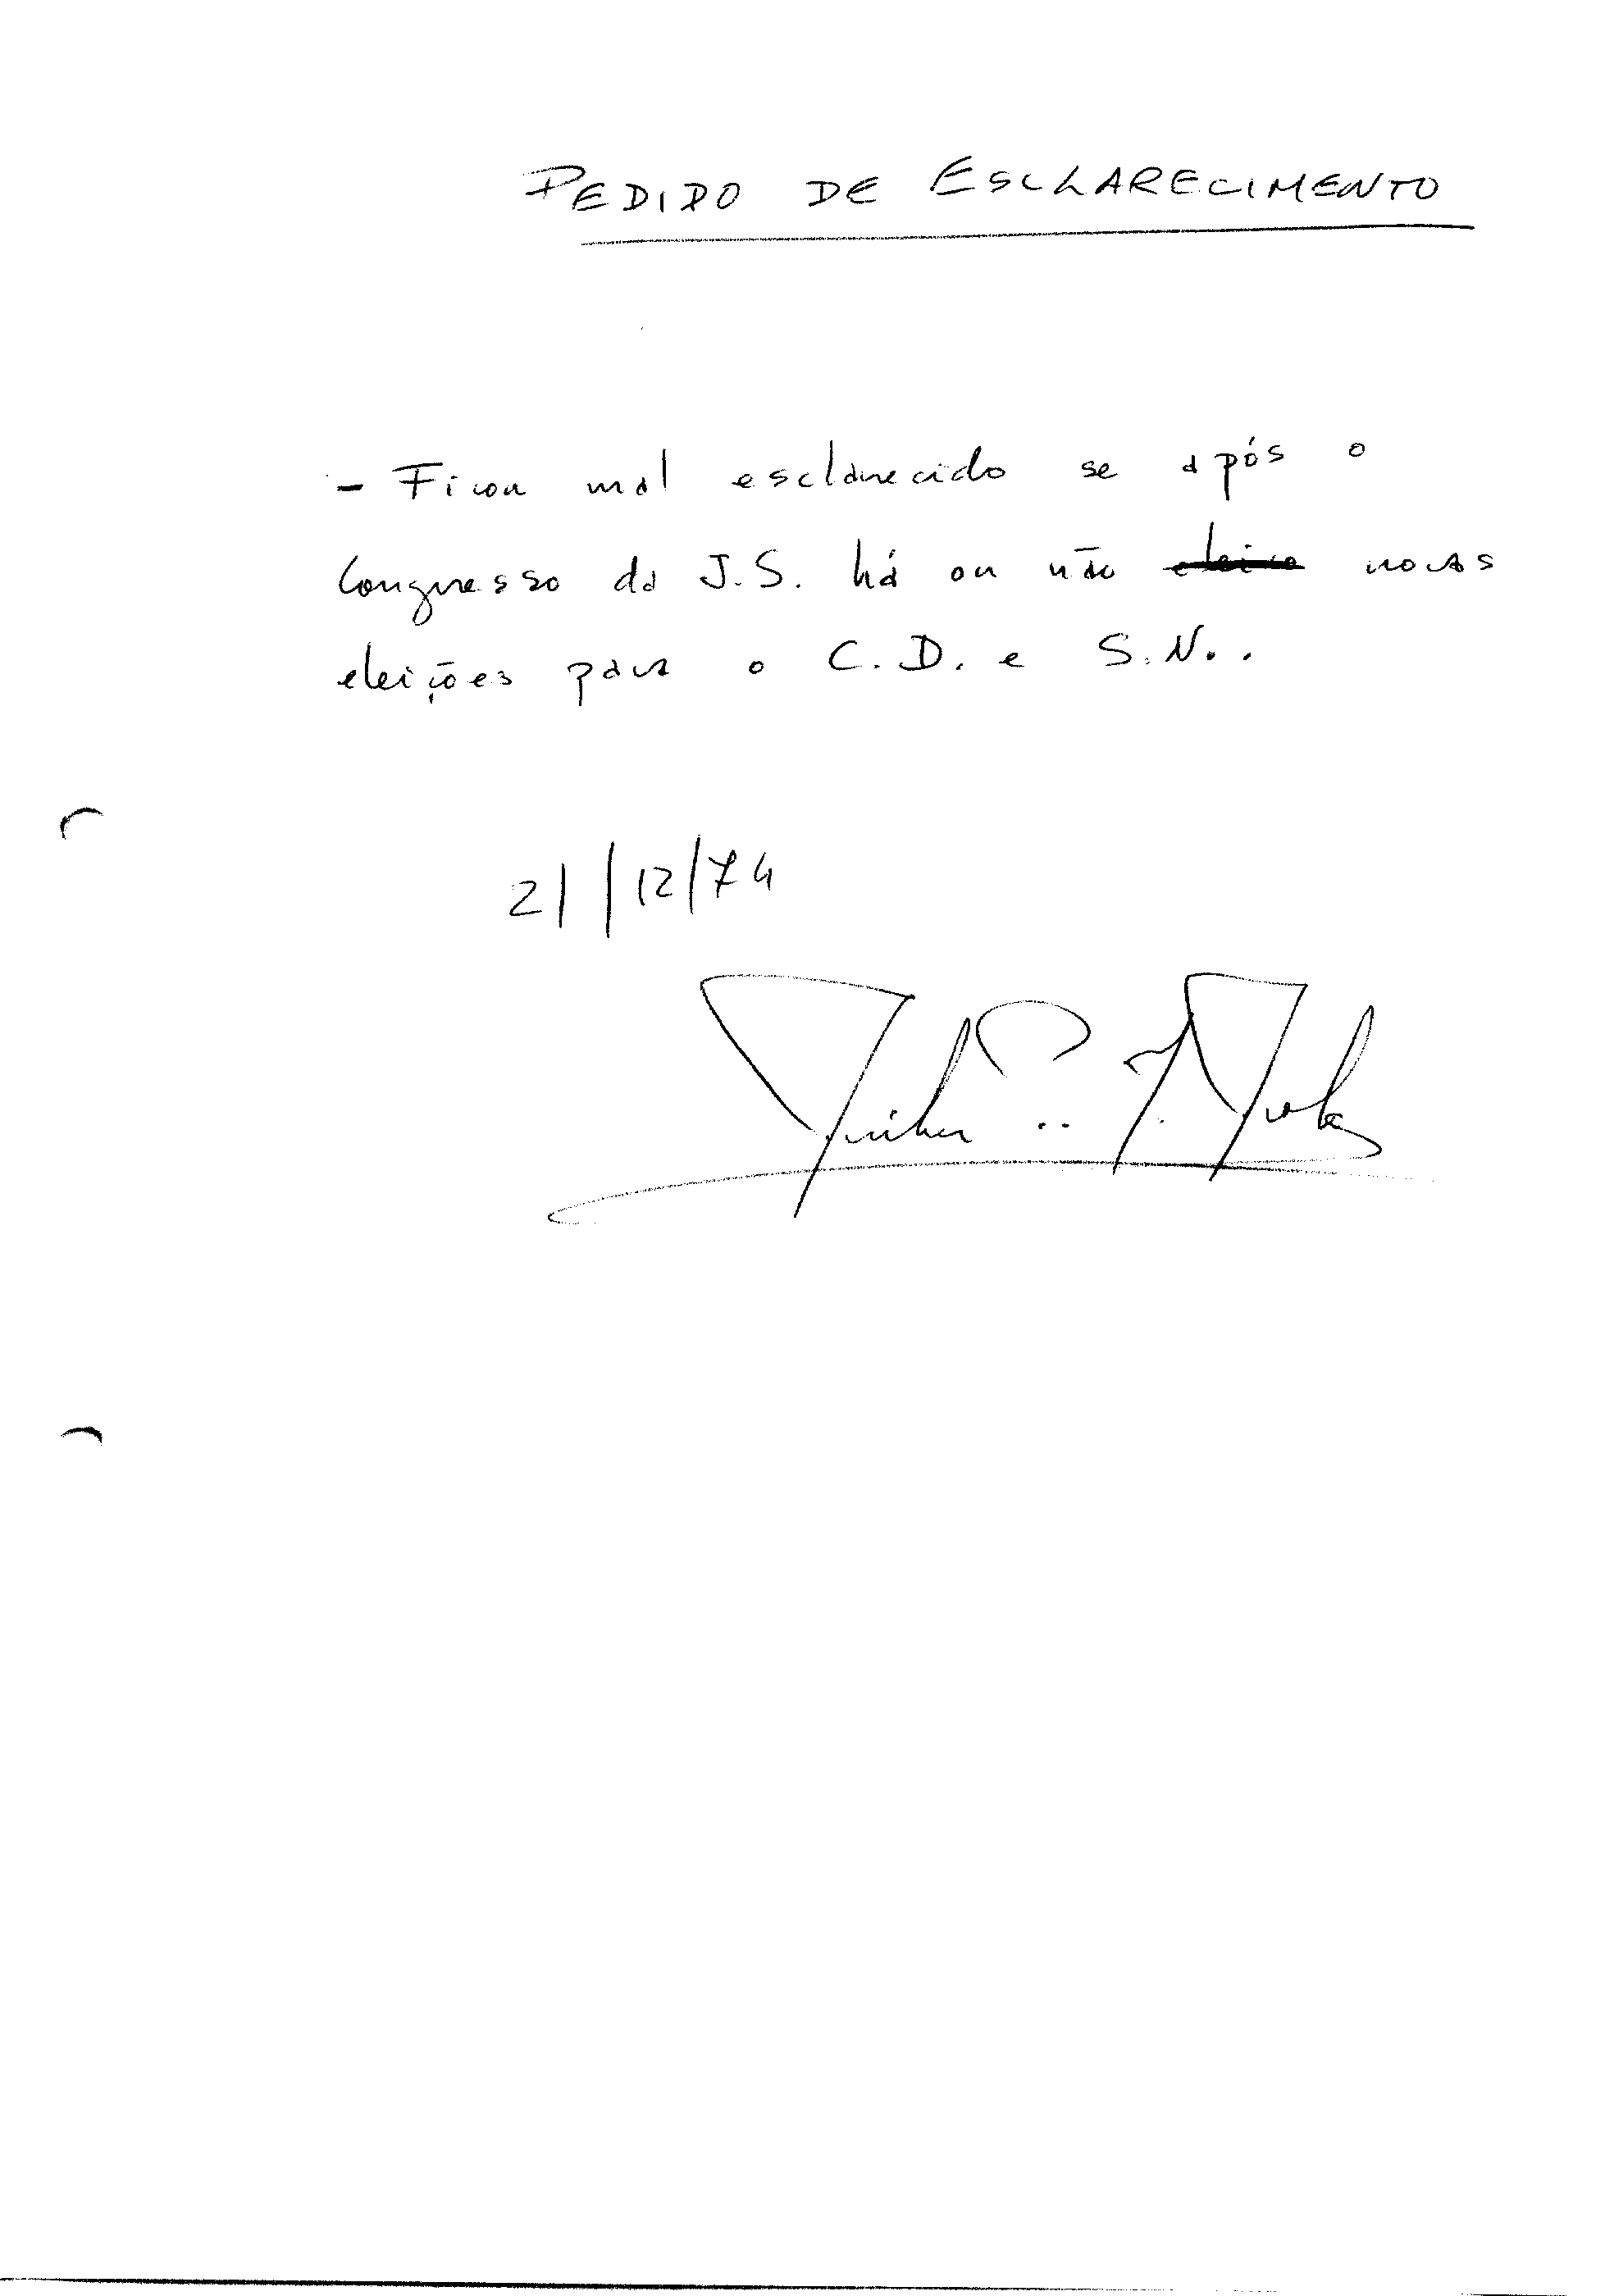 PEDIDO DE ESCLARECIMENTO
- Ficou mal esclarecido se após o
Congresso da J.S. há ou não novas
eleições para o C.D. e S.N..
21/12/74